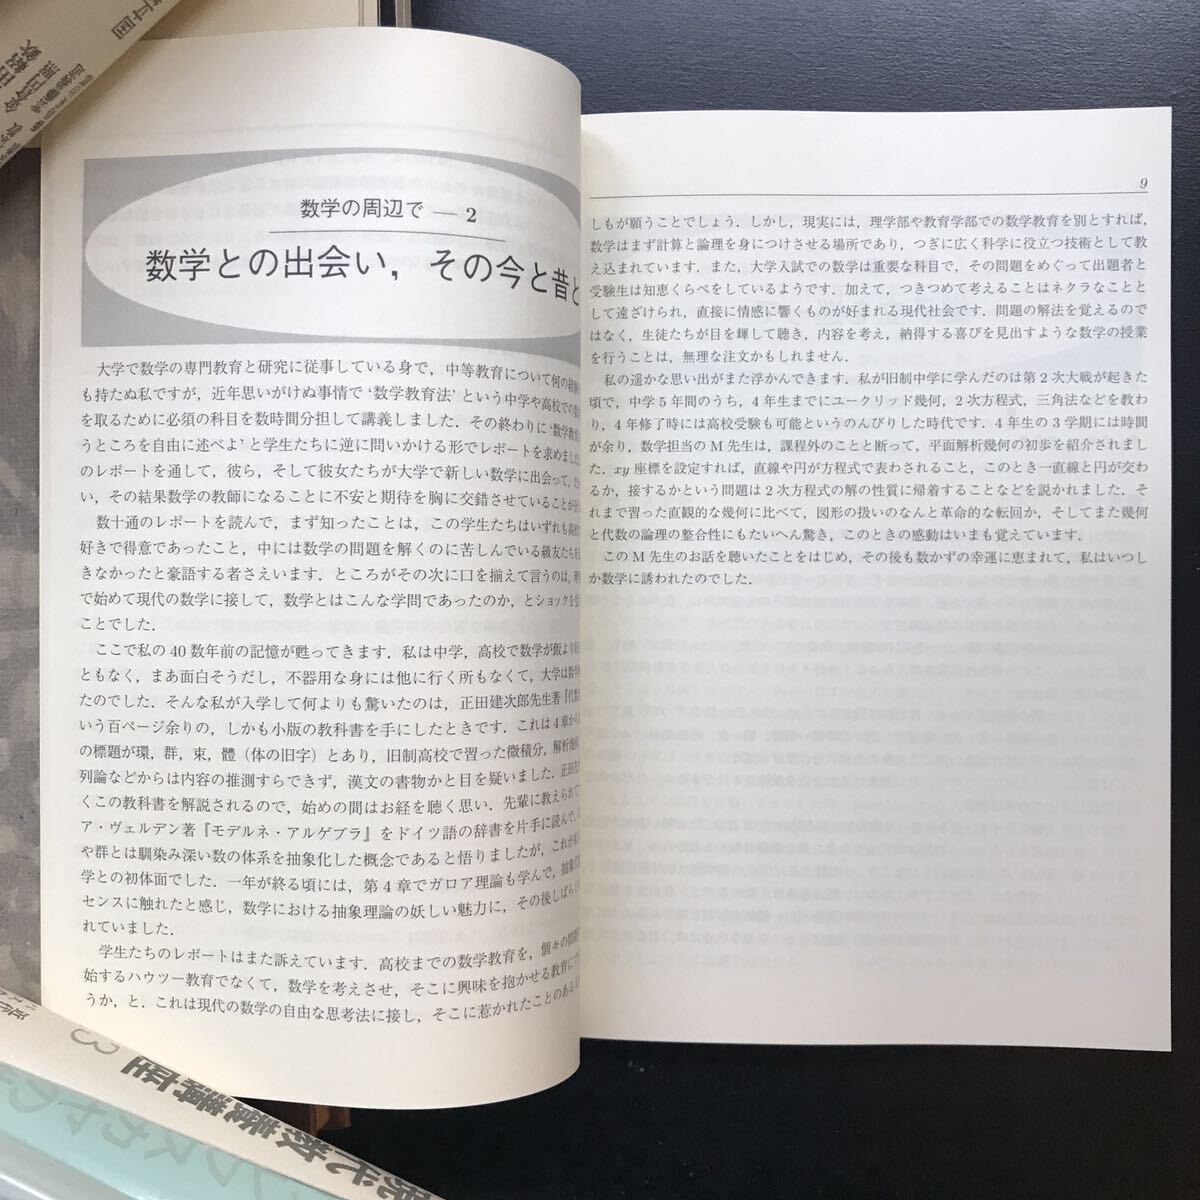 数学の周辺で — 2
数学との出会い，その今と昔と
大学で数学の専門教育と研究に従事している身で，中等教育について何の経験
も持たぬ私ですが，近年思いがけぬ事情で‘数学教育法’という中学や高校での
を取るために必須の科目を数時間分担して講義しました．その終わりに‘数学教
うところを自由に述べよ’と学生たちに逆に問いかける形でレポートを求めました
のレポートを通して，彼ら，そして彼女たちが大学で新しい数学に出会って，
い，その結果数学の教師になることに不安と期待を胸に交錯させていることが
数十通のレポートを読んで，まず知ったことは，この学生たちはいずれも
好きで得意であったこと，中には数学の問題を解くのに苦しんでいる級友たち
きなかったと豪語する者さえいます．ところがその次に口を揃えて言うのは，
で始めて現代の数学に接して，数学とはこんな学問であったのか，とショックを
ことでした．
ここで私の 40 数年前の記憶が甦ってきます．私は中学，高校で数学が飯より
ともなく，まあ面白そうだし，不器用な身には他に行く所もなくて，大学は数学
たのでした．そんな私が入学して何よりも驚いたのは，正田建次郎先生著『代数
いう百ページ余りの，しかも小版の教科書を手にしたときです．これは 4 章から
の標題が環，群，束，體（体の旧字）とあり，旧制高校で習った微積分，解析幾何
列論などからは内容の推測すらできず，漢文の書物かと目を疑いました．正田先
くこの教科書を解説されるので，始めの間はお経を聴く思い．先輩に教えられて
ア・ヴェルデン著『モデルネ・アルゲブラ』をドイツ語の辞書を片手に読んで，
や群とは馴染み深い数の体系を抽象化した概念であると悟りましたが，これが
学との初体面でした．一年が終る頃には，第 4 章でガロア理論も学んで，抽象
センスに触れたと感じ，数学における抽象理論の妖しい魅力に，その後しばらく
れていました．
学生たちのレポートはまた訴えています．高校までの数学教育を，個々の問題
始するハウツー教育でなくて，数学を考えさせ，そこに興味を抱かせる教育に
うか，と．これは現代の数学の自由な思考法に接し，そこに惹かれたことのある
9
しもが願うことでしょう．しかし，現実には，理学部や教育学部での数学教育を別とすれば，
数学はまず計算と論理を身につけさせる場所であり，つぎに広く科学に役立つ技術として教
え込まれています．また，大学入試での数学は重要な科目で，その問題をめぐって出題者と
受験生は知恵くらべをしているようです．加えて，つきつめて考えることはネクラなことと
して遠ざけられ，直接に情感に響くものが好まれる現代社会です．問題の解法を覚えるので
はなく，生徒たちが目を輝して聴き，内容を考え，納得する喜びを見出すような数学の授業
を行うことは，無理な注文かもしれません．
私の遥かな思い出がまた浮かんできます．私が旧制中学に学んだのは第 2 次大戦が起きた
頃で，中学 5 年間のうち，4 年生までにユークリッド幾何，2 次方程式，三角法などを教わ
り，4 年修了時には高校受験も可能というのんびりした時代です．4 年生の 3 学期には時間
が余り，数学担当の M 先生は，課程外のことと断って，平面解析幾何の初歩を紹介されまし
た．xy 座標を設定すれば，直線や円が方程式で表わされること，このとき一直線と円が交わ
るか，接するかという問題は 2 次方程式の解の性質に帰着することなどを説かれました．そ
れまで習った直観的な幾何に比べて，図形の扱いのなんと革命的な転回か，そしてまた幾何
と代数の論理の整合性にもたいへん驚き，このときの感動はいまも覚えています．
この M 先生のお話を聴いたことをはじめ，その後も数かずの幸運に恵まれて，私はいつし
か数学に誘われたのでした．